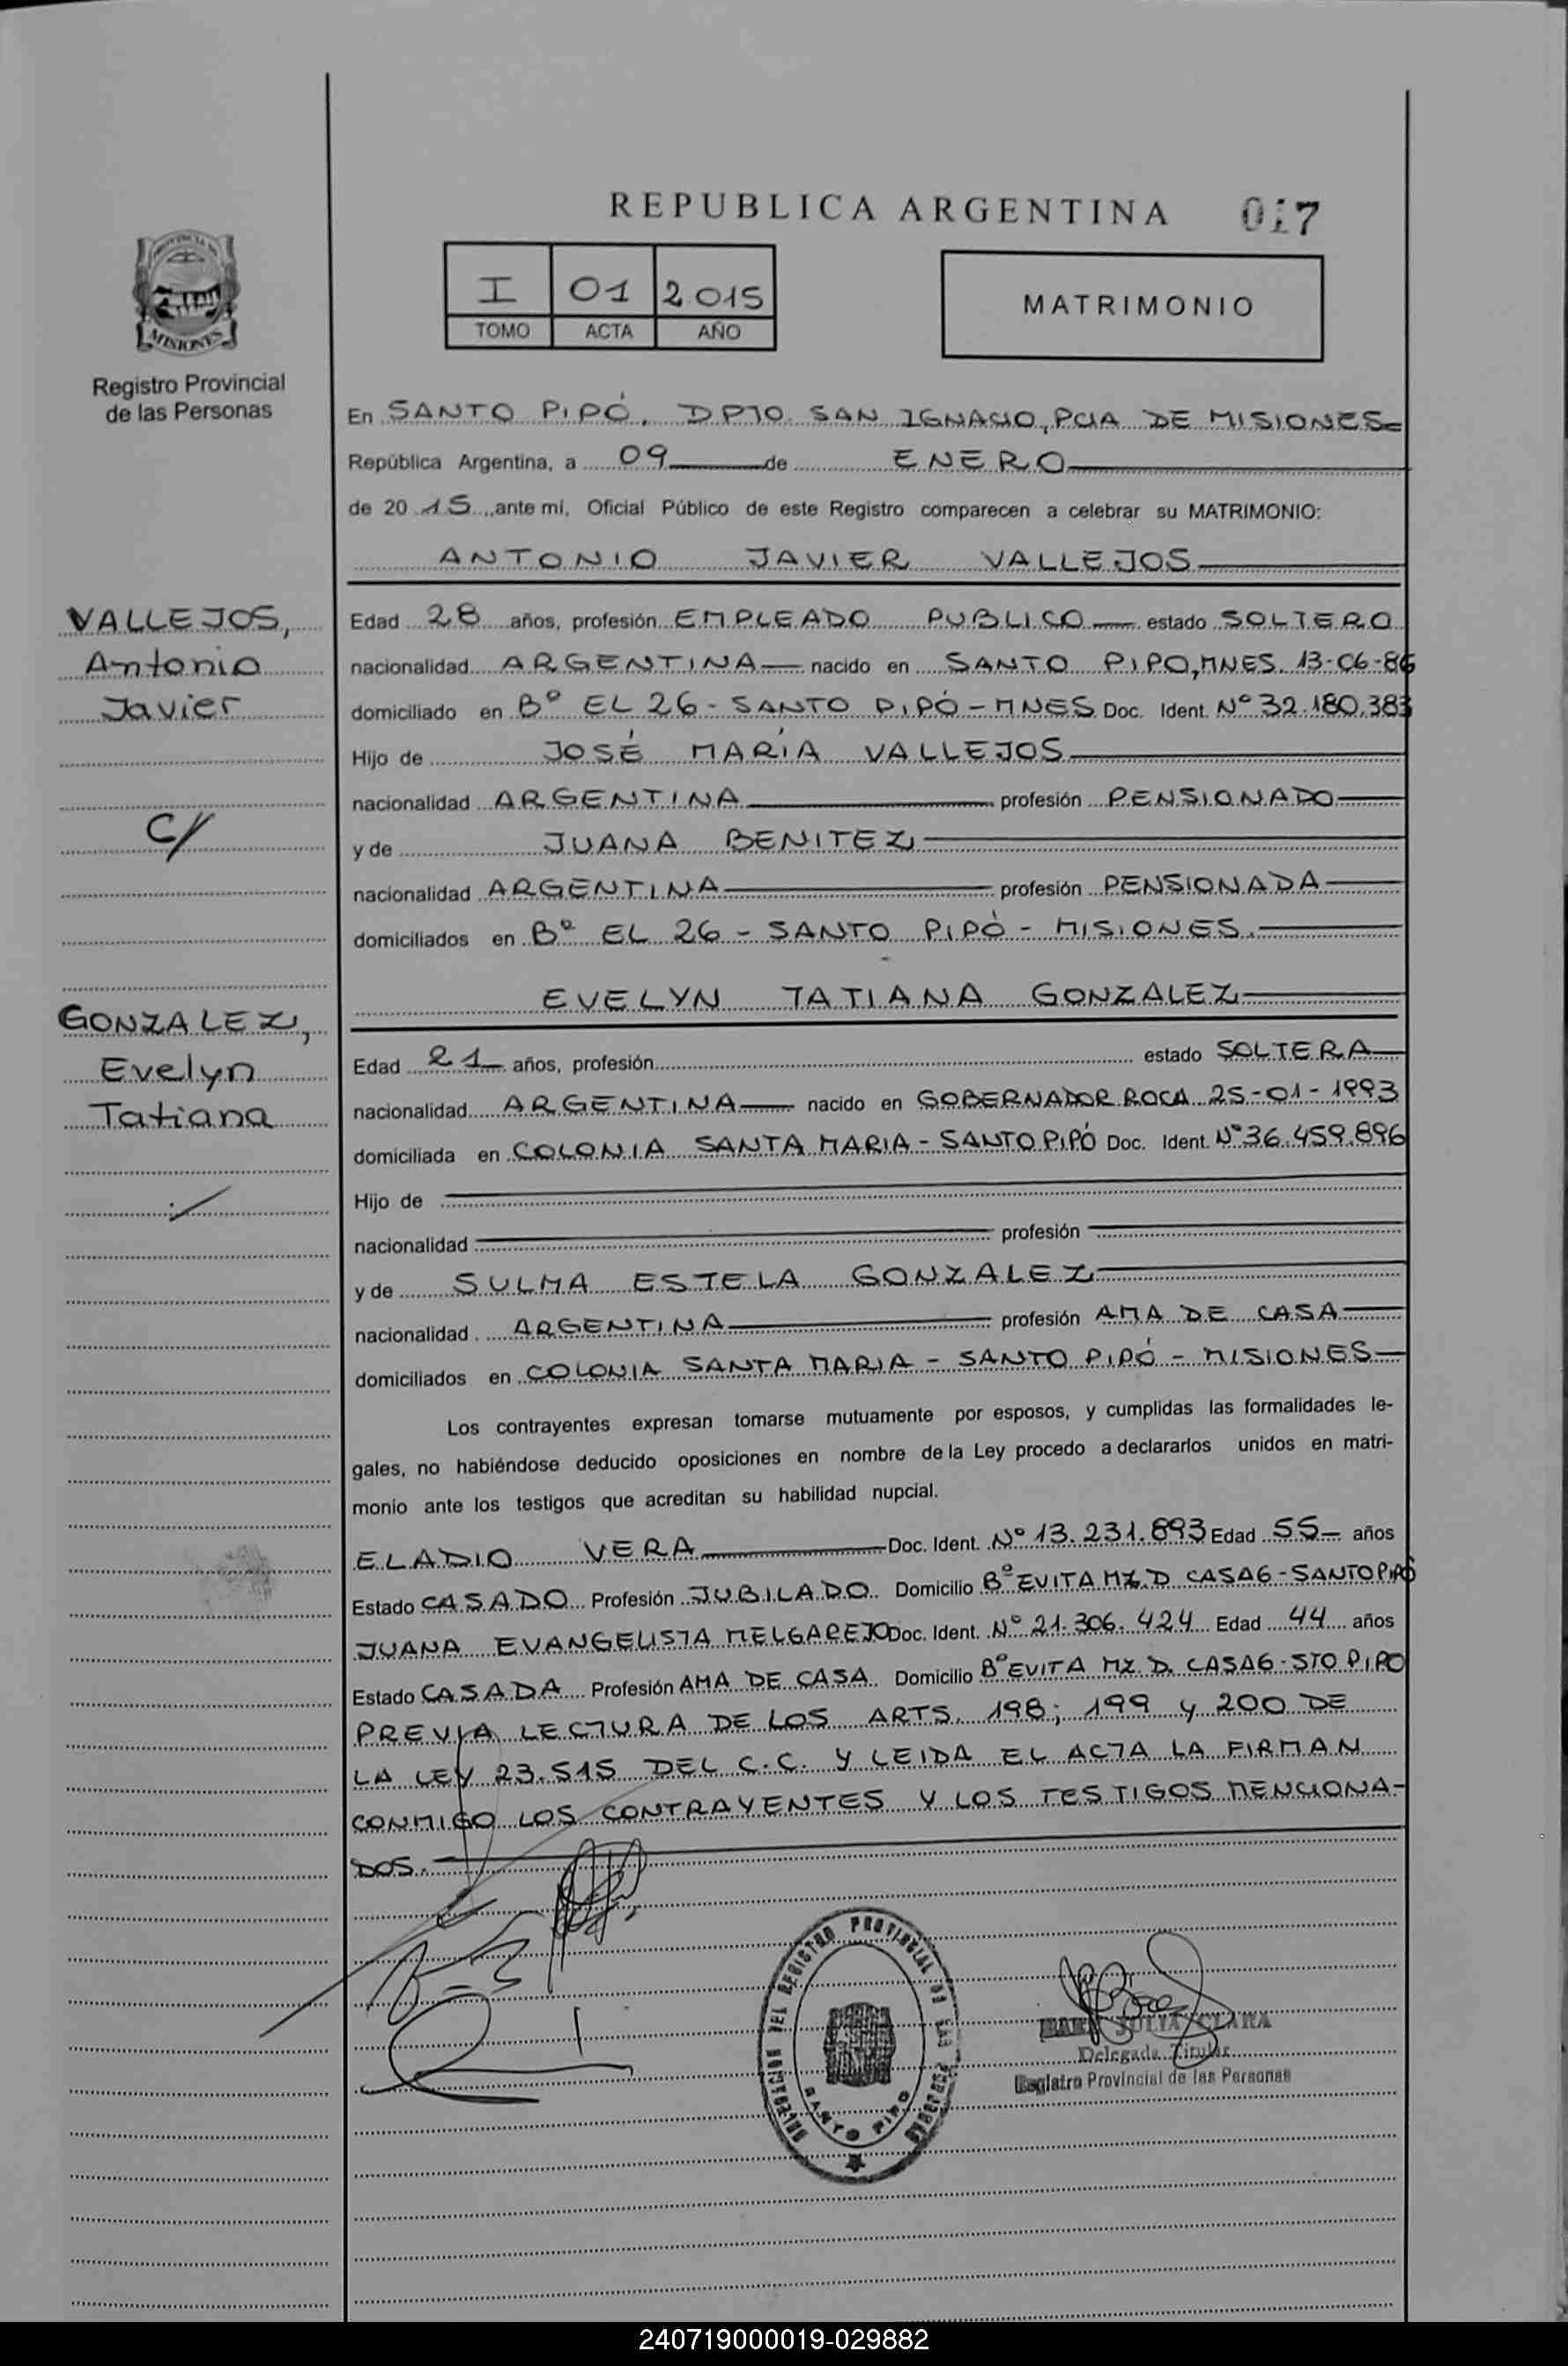 REPUBLICA ARGENTINA 017
I 01 2015
TOMO ACTA AÑO
MATRIMONIO
MISIONES
Registro Provincial
de las Personas
En SANTO PIPÓ, DPTO. SAN IGNACIO, PCIA DE MISIONES
República Argentina, a 09 de ENERO
de 2015, ante mi, Oficial Público de este Registro comparecen a celebrar su MATRIMONIO:
ANTONIO JAVIER VALLEJOS
VALLEJOS,
Antonio
Javier
C/
GONZALEZ,
Evelyn
Tatiana
Edad 28 años, profesión EMPLEADO PUBLICO estado SOLTERO
nacionalidad ARGENTINA nacido en SANTO PIPO, MNES. 13-06-86
domiciliado en Bº EL 26 - SANTO PIPÓ - MNES Doc. Ident. Nº 32.180.383
Hijo de JOSÉ MARÍA VALLEJOS
nacionalidad ARGENTINA profesión PENSIONADO
y de JUANA BENITEZ
nacionalidad ARGENTINA profesión PENSIONADA
domiciliados en Bº EL 26 - SANTO PIPÓ - MISIONES.
EVELYN TATIANA GONZALEZ
Edad 21 años, profesión estado SOLTERA
nacionalidad ARGENTINA nacido en GOBERNADOR ROCA 25-01-1993
domiciliada en COLONIA SANTA MARIA - SANTO PIPÓ Doc. Ident. Nº 36.459.896
Hijo de
nacionalidad profesión
y de SULMA ESTELA GONZALEZ
nacionalidad ARGENTINA profesión AMA DE CASA
domiciliados en COLONIA SANTA MARIA - SANTO PIPÓ - MISIONES
Los contrayentes expresan tomarse mutuamente por esposos, y cumplidas las formalidades le-
gales, no habiéndose deducido oposiciones en nombre de la Ley procedo a declararlos unidos en matri-
monio ante los testigos que acreditan su habilidad nupcial.
ELADIO VERA Doc. Ident. Nº 13.231.893 Edad 55 años
Estado CASADO Profesión JUBILADO Domicilio Bº EVITA MZ. D CASA 6 - SANTO PIPÓ
JUANA EVANGELISTA MELGAREJO Doc. Ident. Nº 21.306.424 Edad 44 años
Estado CASADA Profesión AMA DE CASA Domicilio Bº EVITA MZ. D. CASA 6 - STO PIPO
PREVIA LECTURA DE LOS ARTS. 198; 199 y 200 DE
LA LEY 23.515 DEL C.C. Y LEIDA EL ACTA LA FIRMAN
CONMIGO LOS CONTRAYENTES Y LOS TESTIGOS MENCIONA-
DOS.
DEL REGISTRO PROVINCIAL DE LAS PERSONAS
SANTO PIPO
JULIA CLARA
Delegada Titular
Registro Provincial de las Personas
240719000019-029882